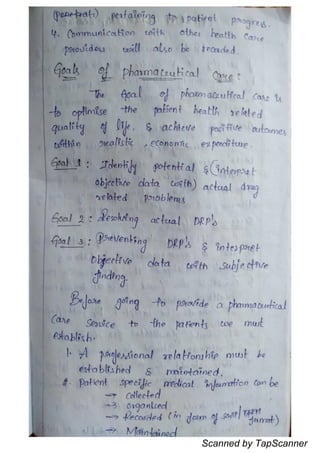 (penetrate) pertaining to patient progress.
4. Communication with other health care
providers will also be recorded.
Goals of pharmaceutical care :
The Goal of pharmaceutical care is
to optimise the patient health related
quality of life. & achieve positive outcomes
within realistic , economic expenditure.
Goal 1 : Identify potential & (interpret
objective data with) actual drug
related problems
Goal 2 : Resolving actual DRP's
Goal 3 : (Preventing DRP's & interpret
Objective data with subjective
finding.
Before going to provide a pharmaceutical
care service to the patients we must
establish.
1. A professional relationship must be
established & maintained.
2. Patient specific medical information can be
→ collected
→ organised
→ Recorded (in form of SOAP/ format)
→ Maintained
Scanned by TapScanner